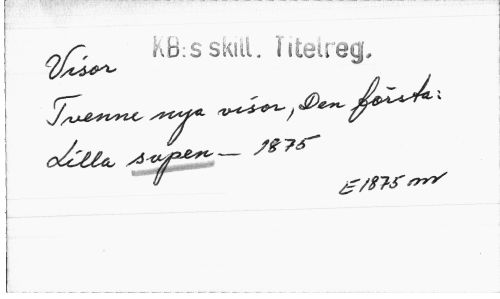 KB:s skill. Titelreg.
Visor
Tvenne nya visor, Den första:
Lilla supen — 1875
E 1875 mr